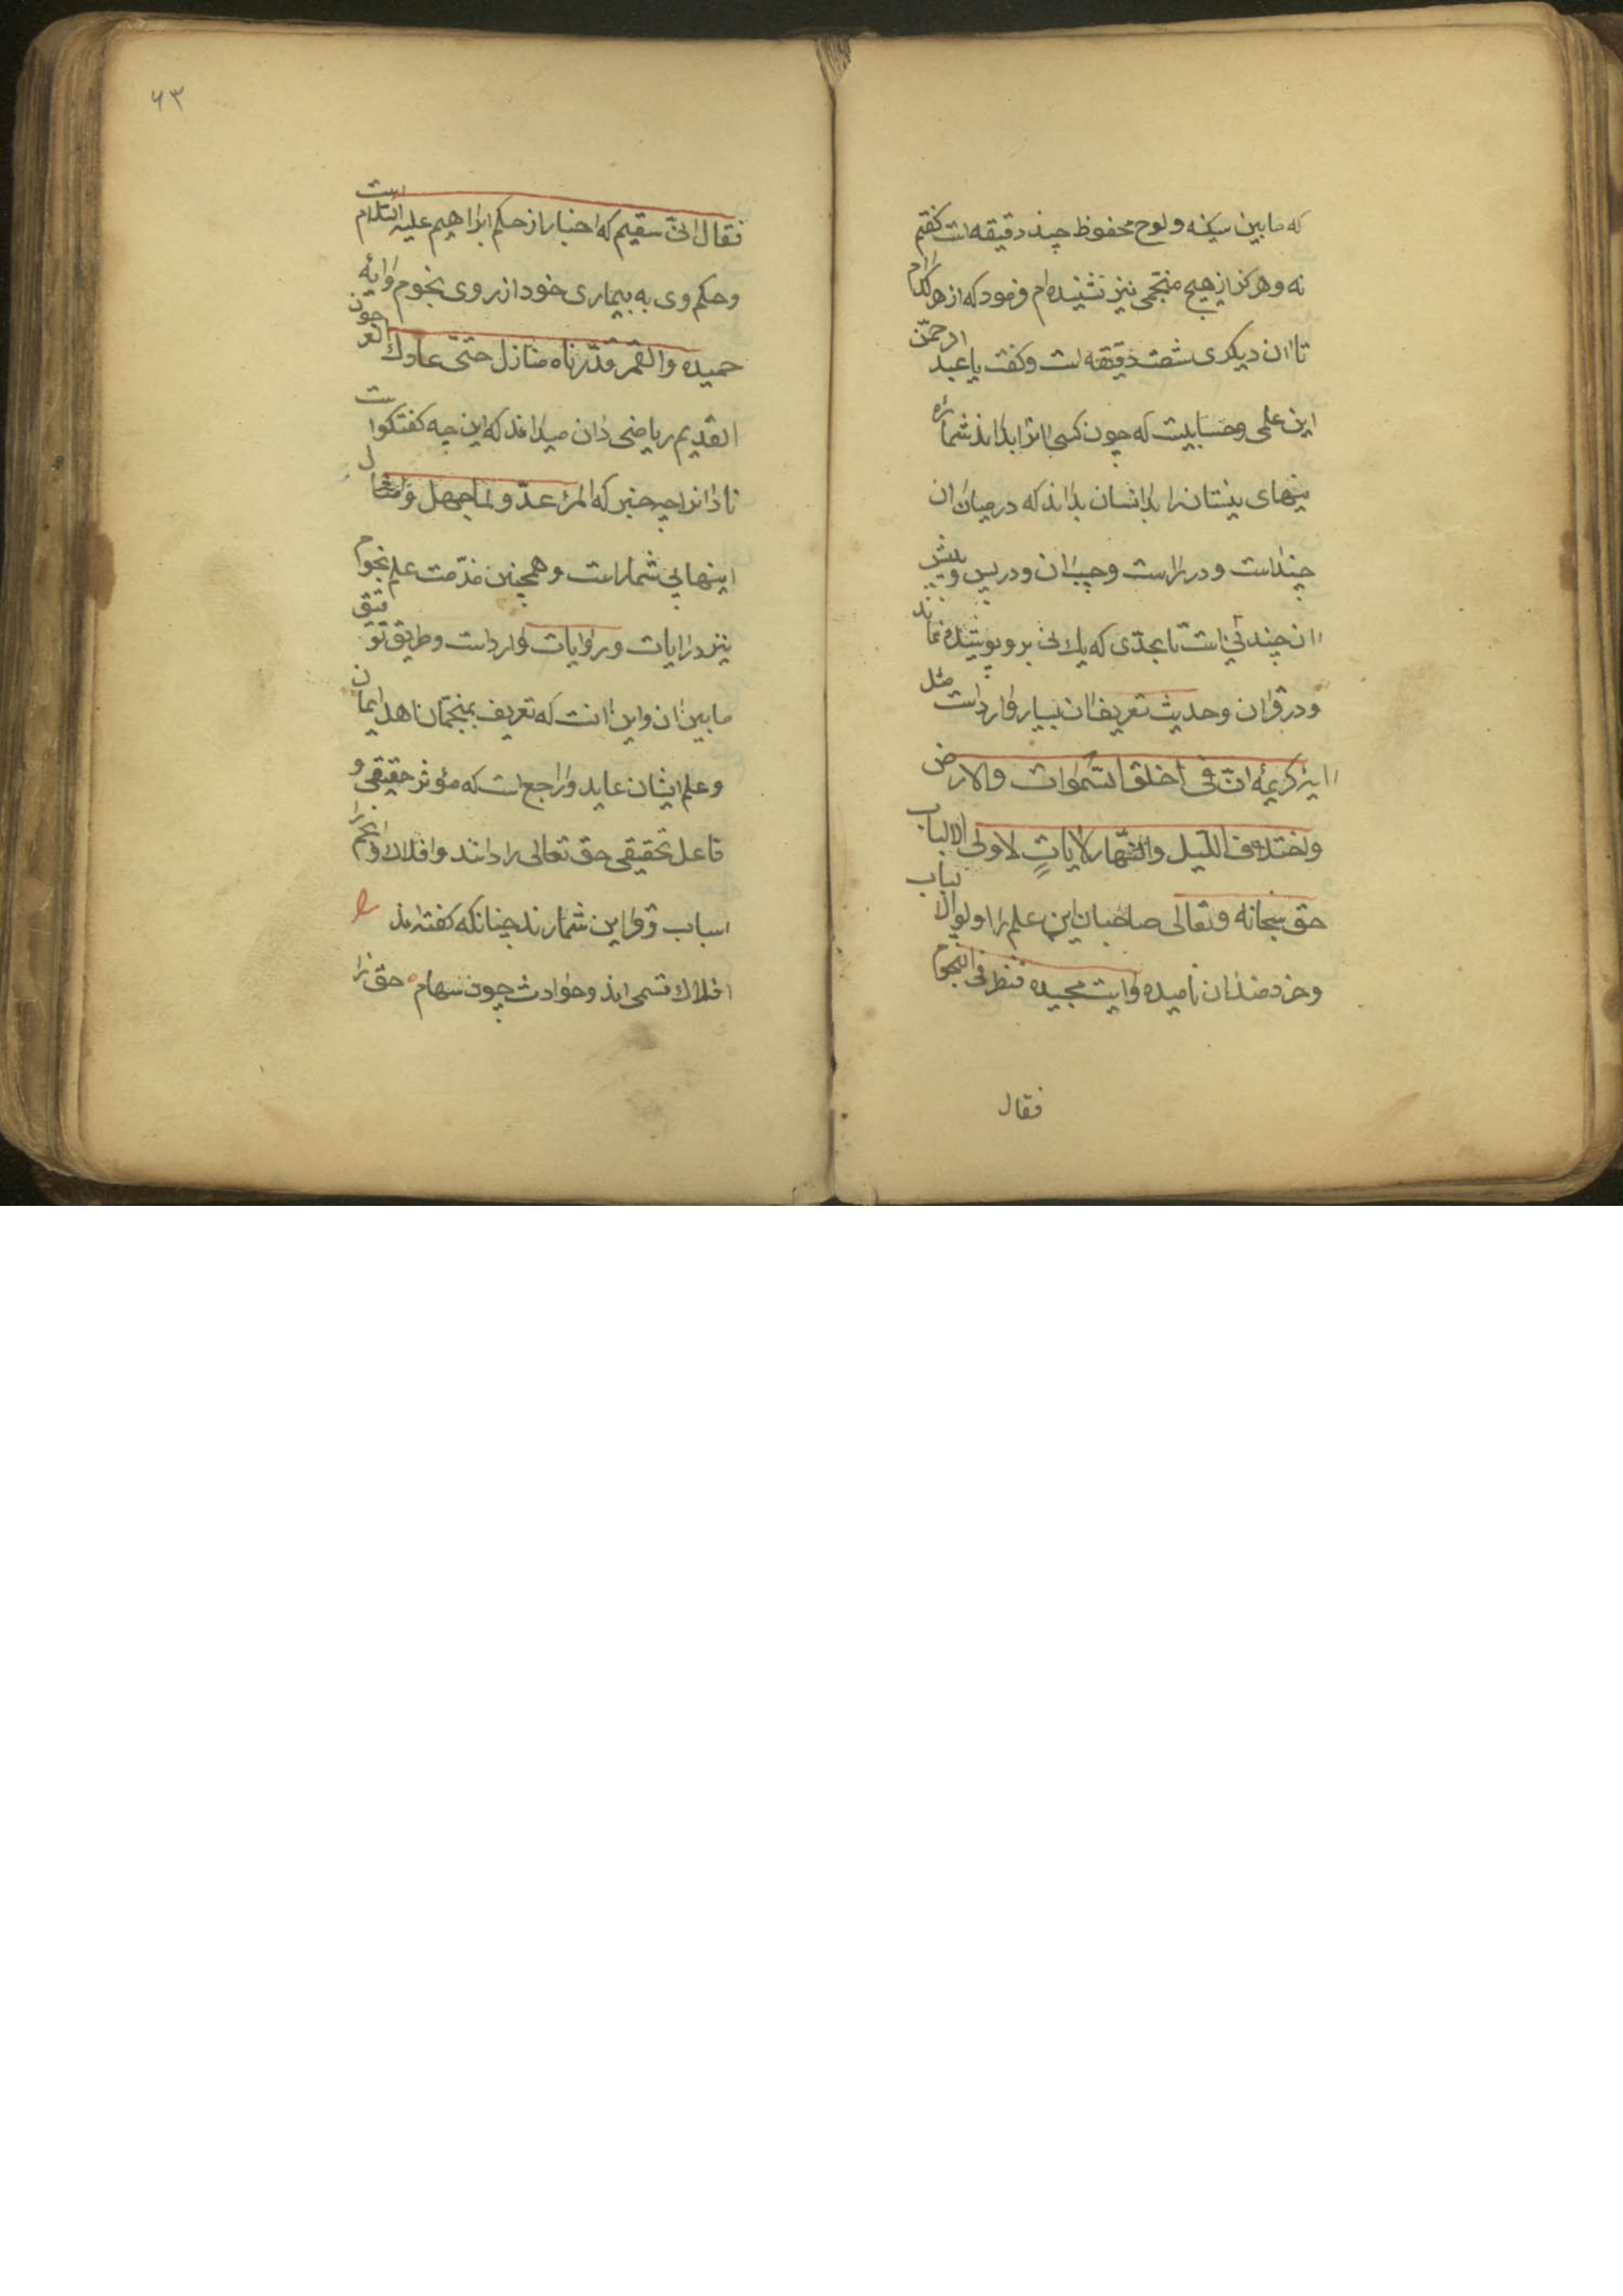 که مابین سکینه و لوح محفوظ چند دقیقه است کفتم
نه و هرکز از هیچ منجّمی نیز نشنیده‌ام فرمود که از هر کدام
تا ان دیکری شصت دقیقه است و کفت یا عبد الرحمّن
این علمی و حسابیست که چون کسی انرا بداند شماره
نیهای نیستان را بدانسان بداند که در میان ان
چنداست و در راست و چپ ان و در پس و پیش
ان چند نی است تا بحدّی که یک نی برو پوشیده نماند
و در قران و حدیث تعریف ان بسیار وارد است مثل
ایه کریمهٔ انّ فی خلق السّموات والارض
واختلاف اللّیل والنّهار لایاتٍ لاولی الالباب
حق سبحانه و تعالی صاحبان این علم را اولوالالباب
و خردمندان نامیده و ایت مجیده فنظر فی النّجوم
فقال
۶۳
فقال انّی سقیم که اخبار از حکم ابراهیم علیه السّلام است
و حکم وی به بیماری خود از روی نجوم و ایهٔ
حمیده والقمر قدّرناه منازل حتّی عاد ک العرجون
القدیم ریاضی دان میداند که این چه کفتکواست
نادانرا چه خبر که المرء عدّو لما جهل و امثال
اینها بی شمار است و همچنین مذّمت علم نجوم
نیز در ایات و روایات وارداست و طریق توفیق
مابین ان و این انست که تعریف بمنجّمان اهل ایمان
و علم ایشان عاید و راجع است که مؤثر حقیقی و
فاعل تحقیقی حق تعالی را دانند و افلاک و انجم را
اسباب و قراین شمارند چنانکه کفته‌اند
افلاک قسی اند و حوادث چون سهام ٥ حق را